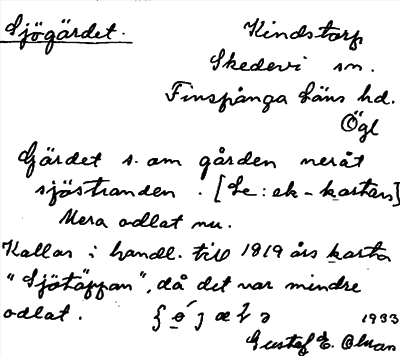 Sjögärdet.
Kindstorp
Skedevi sn.
Finspånga läns hd.
Ögl
Gärdet s. om gården neråt
sjöstranden. [Se: ek-kartan]
Mera odlat nu.
Kallas i handl. till 1919 års karta
"Sjötäppan", då det var mindre
odlat.
1933
Gustaf E. Olsson